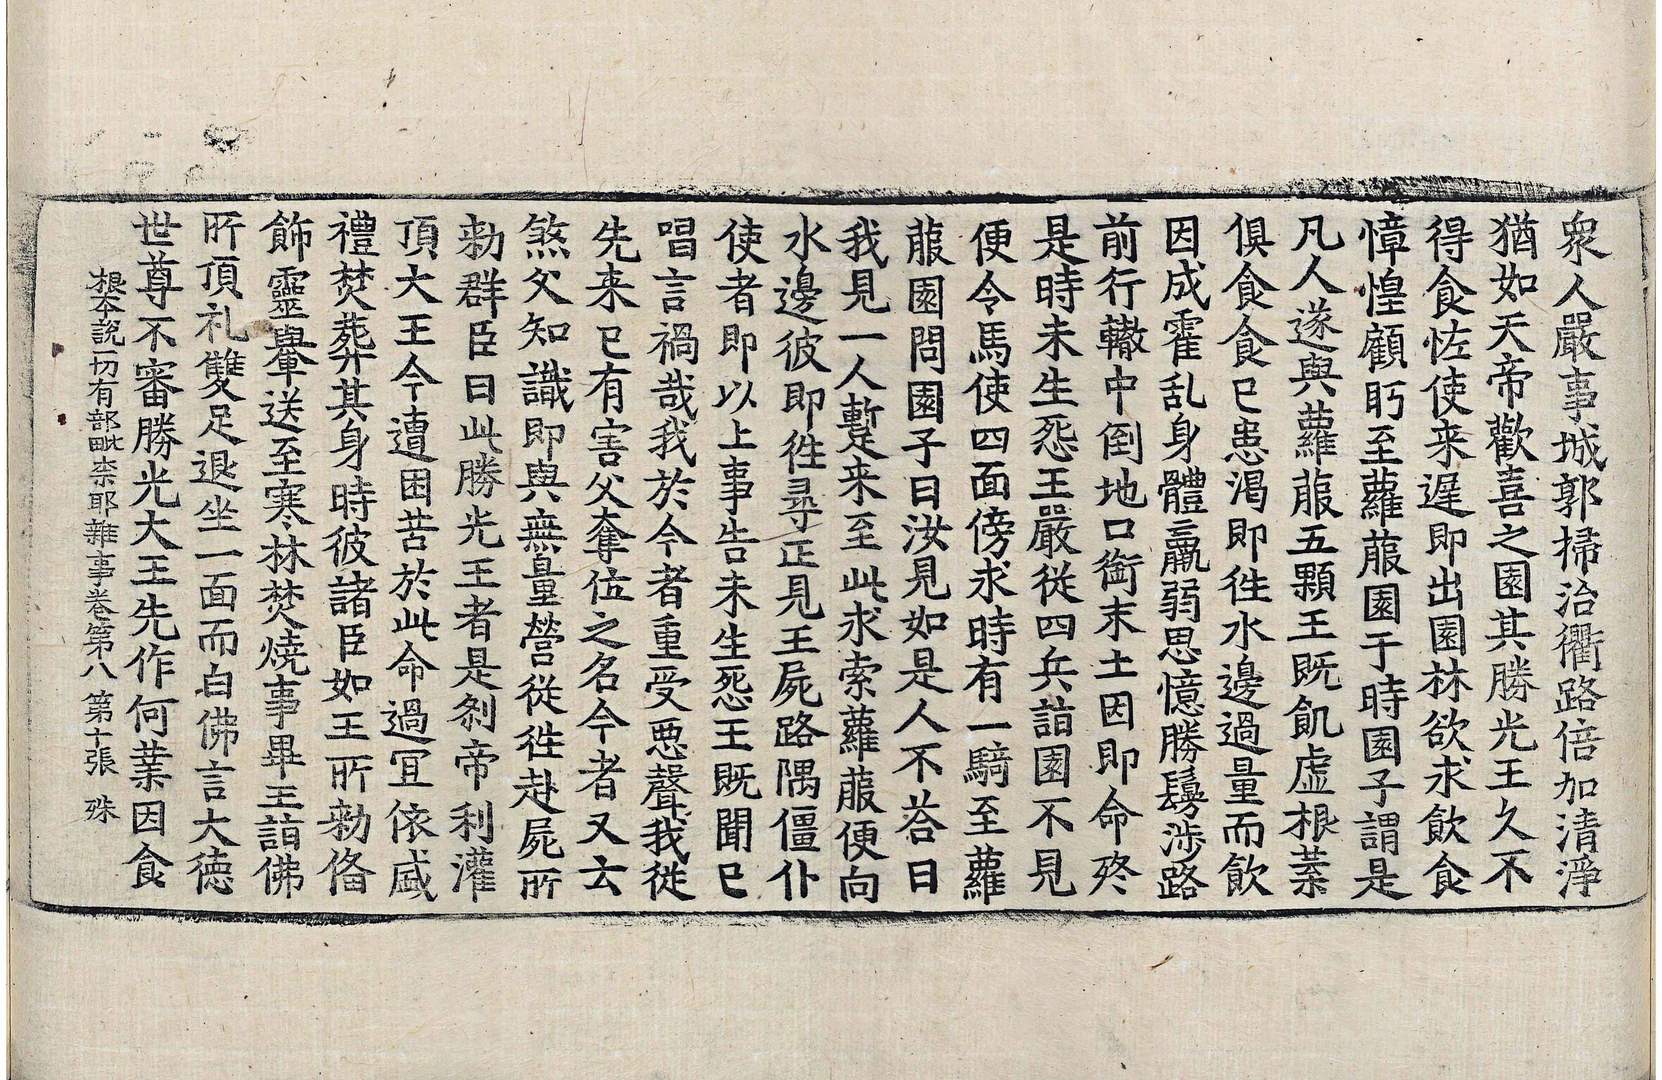 衆人嚴事城郭掃治衢路倍加清淨
猶如天帝歡喜之園其勝光王久不
得食恠使来遲即出園林欲求飮食
慞惶顧眄至蘿菔園于時園子謂是
凡人遂與蘿菔五顆王既飢虛根葉
俱食食已患渴即徃水邊過量而飮
因成霍乱身體羸弱思憶勝鬘涉路
前行轍中倒地口銜末土因即命終
是時未生怨王嚴從四兵詣園不見
便令馬使四面傍求時有一騎至蘿
菔園問園子曰汝見如是人不荅曰
我見一人蹔来至此求索蘿菔便向
水邊彼即徃尋正見王屍路隅僵仆
使者即以上事告未生怨王既聞已
唱言禍哉我於今者重受惡聲我從
先来已有害父奪位之名今者又云
煞父知識即與無量營從徃赴屍所
勑群臣曰此勝光王者是刹帝利灌
頂大王今遭困苦於此命過冝依盛
禮焚葬其身時彼諸臣如王所勑俻
飾靈轝送至寒林焚燒事畢王詣佛
所頂礼雙足退坐一面而白佛言大德
世尊不審勝光大王先作何業因食
根本說一切有部毗柰耶雜事卷第八　第十張　殊